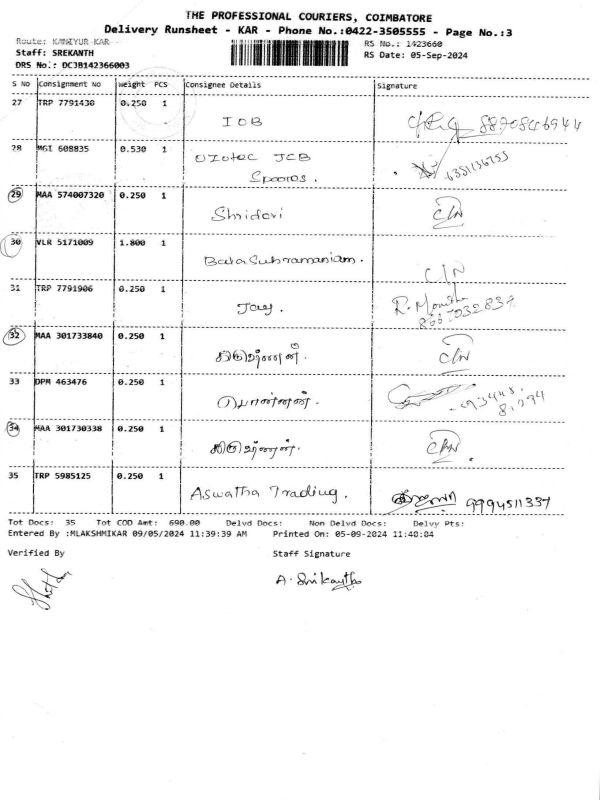 THE PROFESSIONAL COURIERS, COIMBATORE
Delivery Runsheet - KAR - Phone No.:0422-3505555 - Page No.:3
Route: KANIYUR-KAR
RS No.: 1423660
Staff: SREKANTH
RS Date: 05-Sep-2024
DRS No.: DC3B142366003
S No Consignment No Weight PCS Consignee Details Signature
27 TRP 7791430 0.250 1 IOB 8870846944
28 MGI 608835 0.530 1 JCB
Spares. 6351136755
29 MAA 574007320 0.250 1 Shridevi C/N
30 VLR 5171009 1.800 1 Balasubramaniam. C/N
31 TRP 7791906 0.250 1 Jay. R. Monisha
8667032837
32 MAA 301733840 0.250 1 C/N
33 DPM 463476 0.250 1 பொன்னன்.
34 MAA 301730338 0.250 1 C/N
35 TRP 5985125 0.250 1 Aswatha Trading. 9994511337
Tot Docs: 35 Tot COD Amt: 690.00 Delvd Docs: Non Delvd Docs: Delvy Pts:
Entered By :MLAKSHMIKAR 09/05/2024 11:39:39 AM Printed On: 05-09-2024 11:40:04
Verified By Staff Signature
A. Srikantha